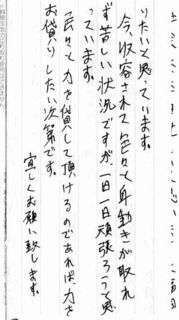 りたいと思っています。
今、収容されて色々と身動きが取れ
ず苦しい状況ですが一日一日頑張ろうって思
っています。
色々と力を貸して頂けるのであれば、力を
お貸りしたい次第です。
宜しくお願い致します。